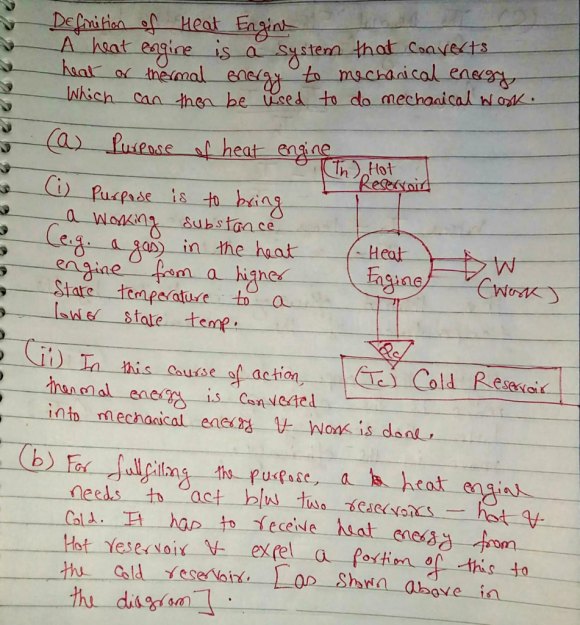 Definition of Heat Engine
A heat engine is a system that converts
heat or thermal energy to mechanical energy,
which can then be used to do mechanical work.
(a) Purpose of heat engine
(Th) Hot
Reservoir
(i) Purpose is to bring
a working substance
(e.g. a gas) in the heat
engine from a higher
state temperature to a
lower state temp.
Heat
Engine
W
(Work)
Qc
(Tc) Cold Reservoir
(ii) In this course of action,
thermal energy is converted
into mechanical energy & work is done.
(b) For fullfilling the purpose, a heat engine
needs to act b/w two reservoirs – hot &
cold. It has to receive heat energy from
Hot reservoir & expel a portion of this to
the cold reservoir. [as shown above in
the diagram].